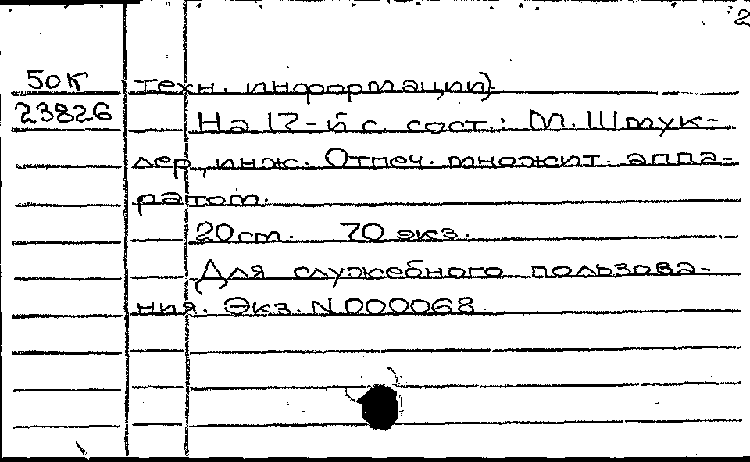 2
50К техн. информации).
23826 На 17-й с. сост.: М. Штук-
лер, инж. Отпеч. множит. аппа-
ратом.
20 cm. 70 экз.
Для служебного пользова-
ния. Экз. N 000068.